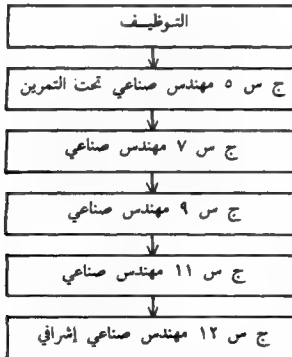 التوظيف
ج س ٥ مهندس صناعي تحت التمرين
ج س ٧ مهندس صناعي
ج س ٩ مهندس صناعي
ج س ١١ مهندس صناعي
ج س ١٢ مهندس صناعي إشرافي